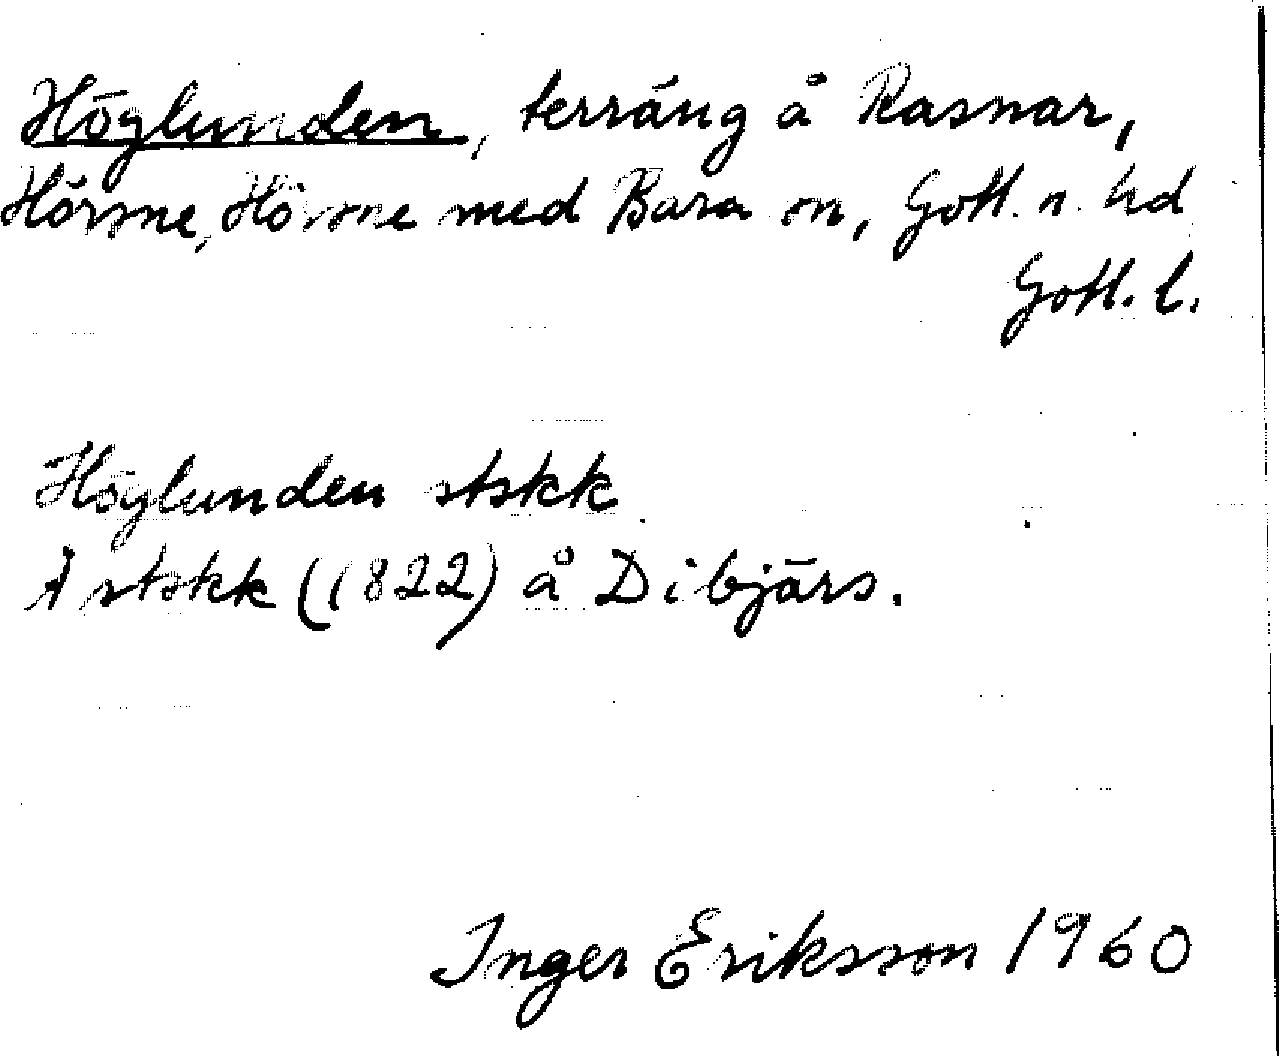 Höglunden, terräng å Rasnar,
Hörsne, Hörsne med Bara sn, Gotl. n. hd
Gotl. l.
Höglunden stskk
Ä stskk (1822) å Dibjärs.
Inger Eriksson 1960